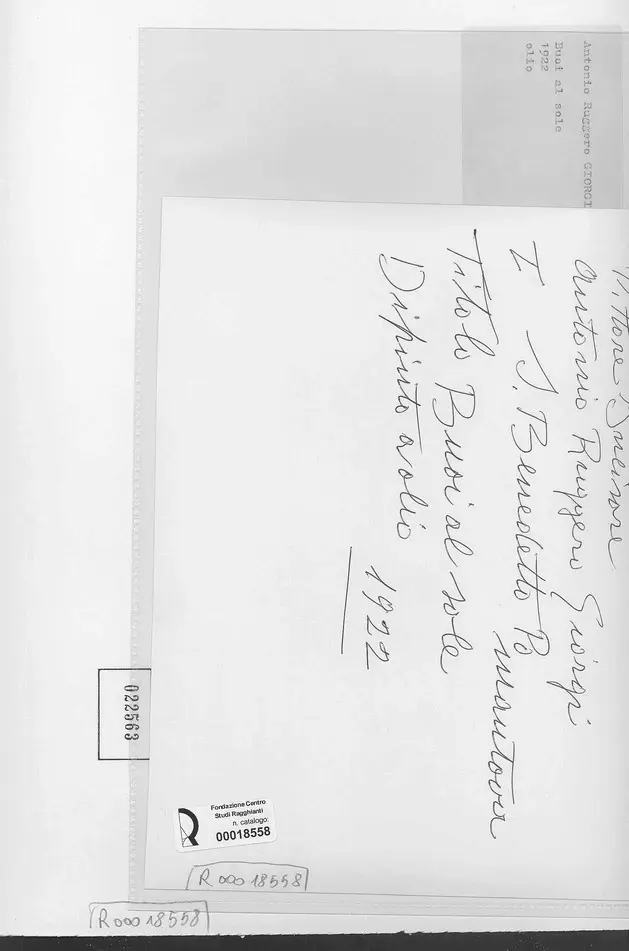 Antonio Ruggero GIORGI
Buoi al sole
1922
olio
Pittore Incisore
Antonio Ruggero Giorgi
I S. Benedetto Po mantova
Titolo Buoi al sole
Dipinto a olio 1922
022563
Fondazione Centro
Studi Ragghianti
n. catalogo:
00018558
R 00018558
R00018558